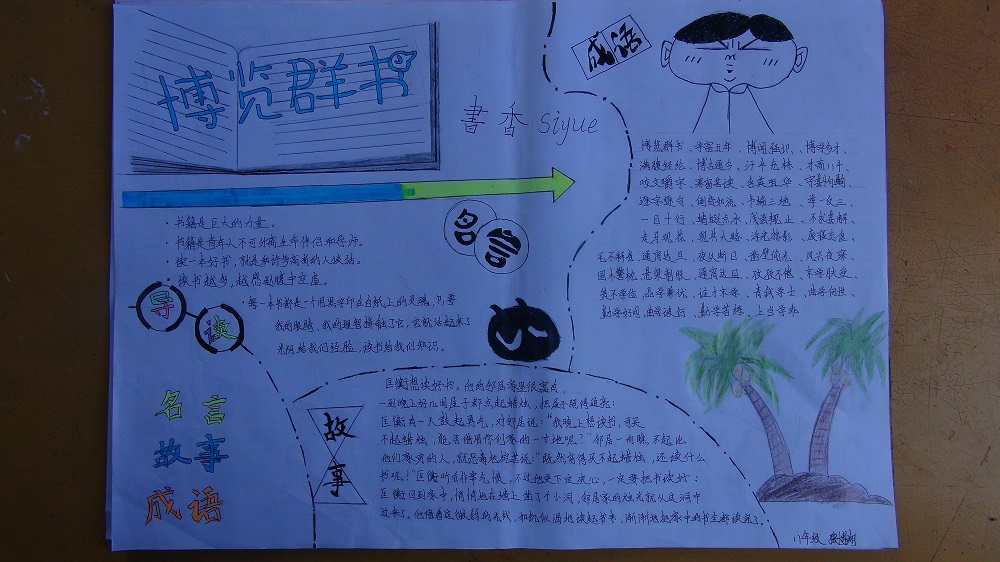 博览群书
書香 siyue
成语
博览群书、学富五车、博闻强识、博学多才、
满腹经纶、博古通今、汗牛充栋、才高八斗、
咬文嚼字、寒窗苦读、含英咀华、
逐字逐句、倒背如流、韦编三绝、举一反三、
一目十行、蜻蜓点水、浅尝辄止、不求甚解、
走马观花、浮光掠影、废寝忘食、
手不释卷、通宵达旦、夜以继日、凿壁偷光、
囊萤映雪、悬梁刺股、通宵达旦、孜孜不倦、
品学兼优、
勤学好问、勤学苦练、
名言
·书籍是巨大的力量。
·书籍是青年人不可分离的生命伴侣和导师。
·读一本好书，就是和许多高尚的人谈话。
·读书越多，越感到腹中空虚。
·每一本书都是一个用黑字印在白纸上的灵魂，只要
我的眼睛、我的理智接触了它，它就活起来了
光阴给我们经验，读书给我们知识。
导读
名言
故事
成语
故事
匡衡想读好书。他的邻居家里很富有，
一到晚上好几间屋子都点起蜡烛，把屋子照得通亮：
匡衡有一天鼓起勇气，对邻居说："我晚上想读书，可买
不起蜡烛，能否借用你们家的一寸地呢？"邻居一向瞧不起比
他们家穷的人，就恶毒地挖苦说："既然穷得买不起蜡烛，还读什么
书呢！"匡衡听后非常气愤，不过他更下定决心，一定要把书读好：
匡衡回到家中，悄悄地在墙上凿了个小洞，邻居家的烛光就从这洞中
过来了。他借着这微弱的光线，如饥似渴地读起书来，渐渐地把家中的书全都读完了。
八年级